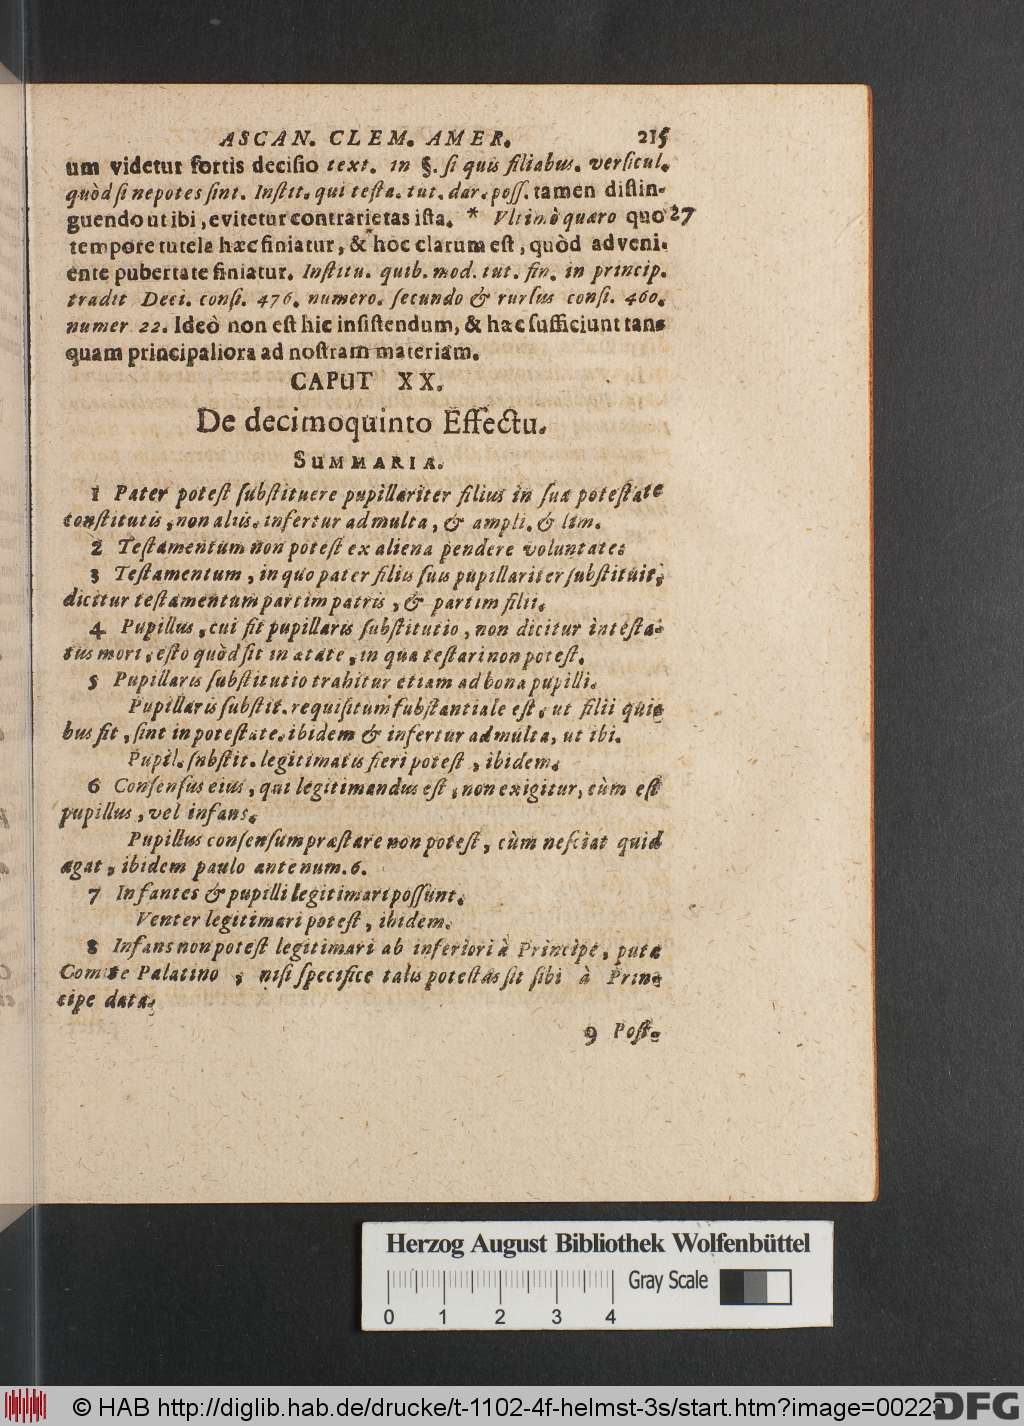 ASCAN. CLEM. AMER. 215
um videtur fortis decisio text. in §. si quis filiabus. versicul.
quòd si nepotes sint. Instit. qui testa. tut. dar. poss. tamen distin-
guendo ut ibi, evitetur contrarietas ista. * Vltimò quæro quo 27
tempore tutela hæc finiatur, & hoc clarum est, quòd adveni-
ente pubertate finiatur. Institu. quib. mod. tut. fin. in princip.
tradit Deci. consi. 476. numero. secundo & rursus consi. 460.
numer. 22. Ideò non est hic insistendum, & hæc sufficiunt tan-
quam principaliora ad nostram materiam.
CAPUT XX.
De decimoquinto Effectu.
SUMMARIA.
1 Pater potest substituere pupillariter filius in sua potestate
constitutis, non aliis. infertur ad multa, & ampli. & lim.
2 Testamentum non potest ex aliena pendere voluntate.
3 Testamentum, in quo pater filiis suis pupillariter substituit,
dicitur testamentum partim patris, & partim filii.
4 Pupillus, cui fit pupillaris substitutio, non dicitur intesta-
tus mori, esto quòd sit in ætate, in qua testari non potest.
5 Pupillaris substitutio trahitur etiam ad bona pupilli.
Pupillaris substit. requisitum substantiale est, ut filii qui-
bus fit, sint in potestate. ibidem & infertur ad multa, ut ibi.
Pupil. substit. legitimatis fieri potest, ibidem.
6 Consensus eius, qui legitimandus est, non exigitur, cùm est
pupillus, vel infans.
Pupillus consensum præstare non potest, cùm nesciat quid
agat, ibidem paulo ante num. 6.
7 Infantes & pupilli legitimari possunt.
Venter legitimari potest, ibidem.
8 Infans non potest legitimari ab inferiori à Principe, puta
Comite Palatino, nisi specifice talis potestas sit sibi à Prin-
cipe data.
9 Post-
Herzog August Bibliothek Wolfenbüttel
Gray Scale
0 1 2 3 4
© HAB http://diglib.hab.de/drucke/t-1102-4f-helmst-3s/start.htm?image=00223
DFG